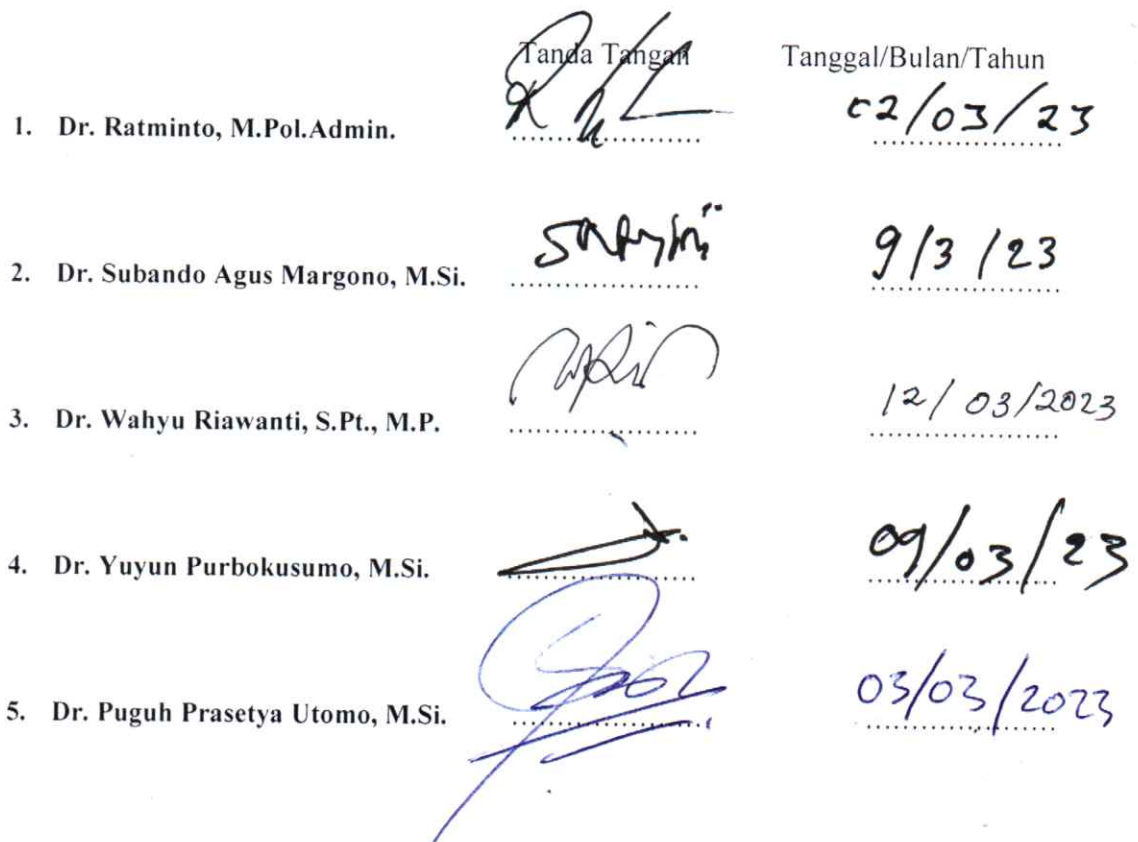 Tanda Tangan Tanggal/Bulan/Tahun
1. Dr. Ratminto, M.Pol.Admin. ..................... 02/03/23
2. Dr. Subando Agus Margono, M.Si. ..................... 9/3/23
3. Dr. Wahyu Riawanti, S.Pt., M.P. ..................... 12/03/2023
4. Dr. Yuyun Purbokusumo, M.Si. ..................... 09/03/23
5. Dr. Puguh Prasetya Utomo, M.Si. ..................... 03/03/2023